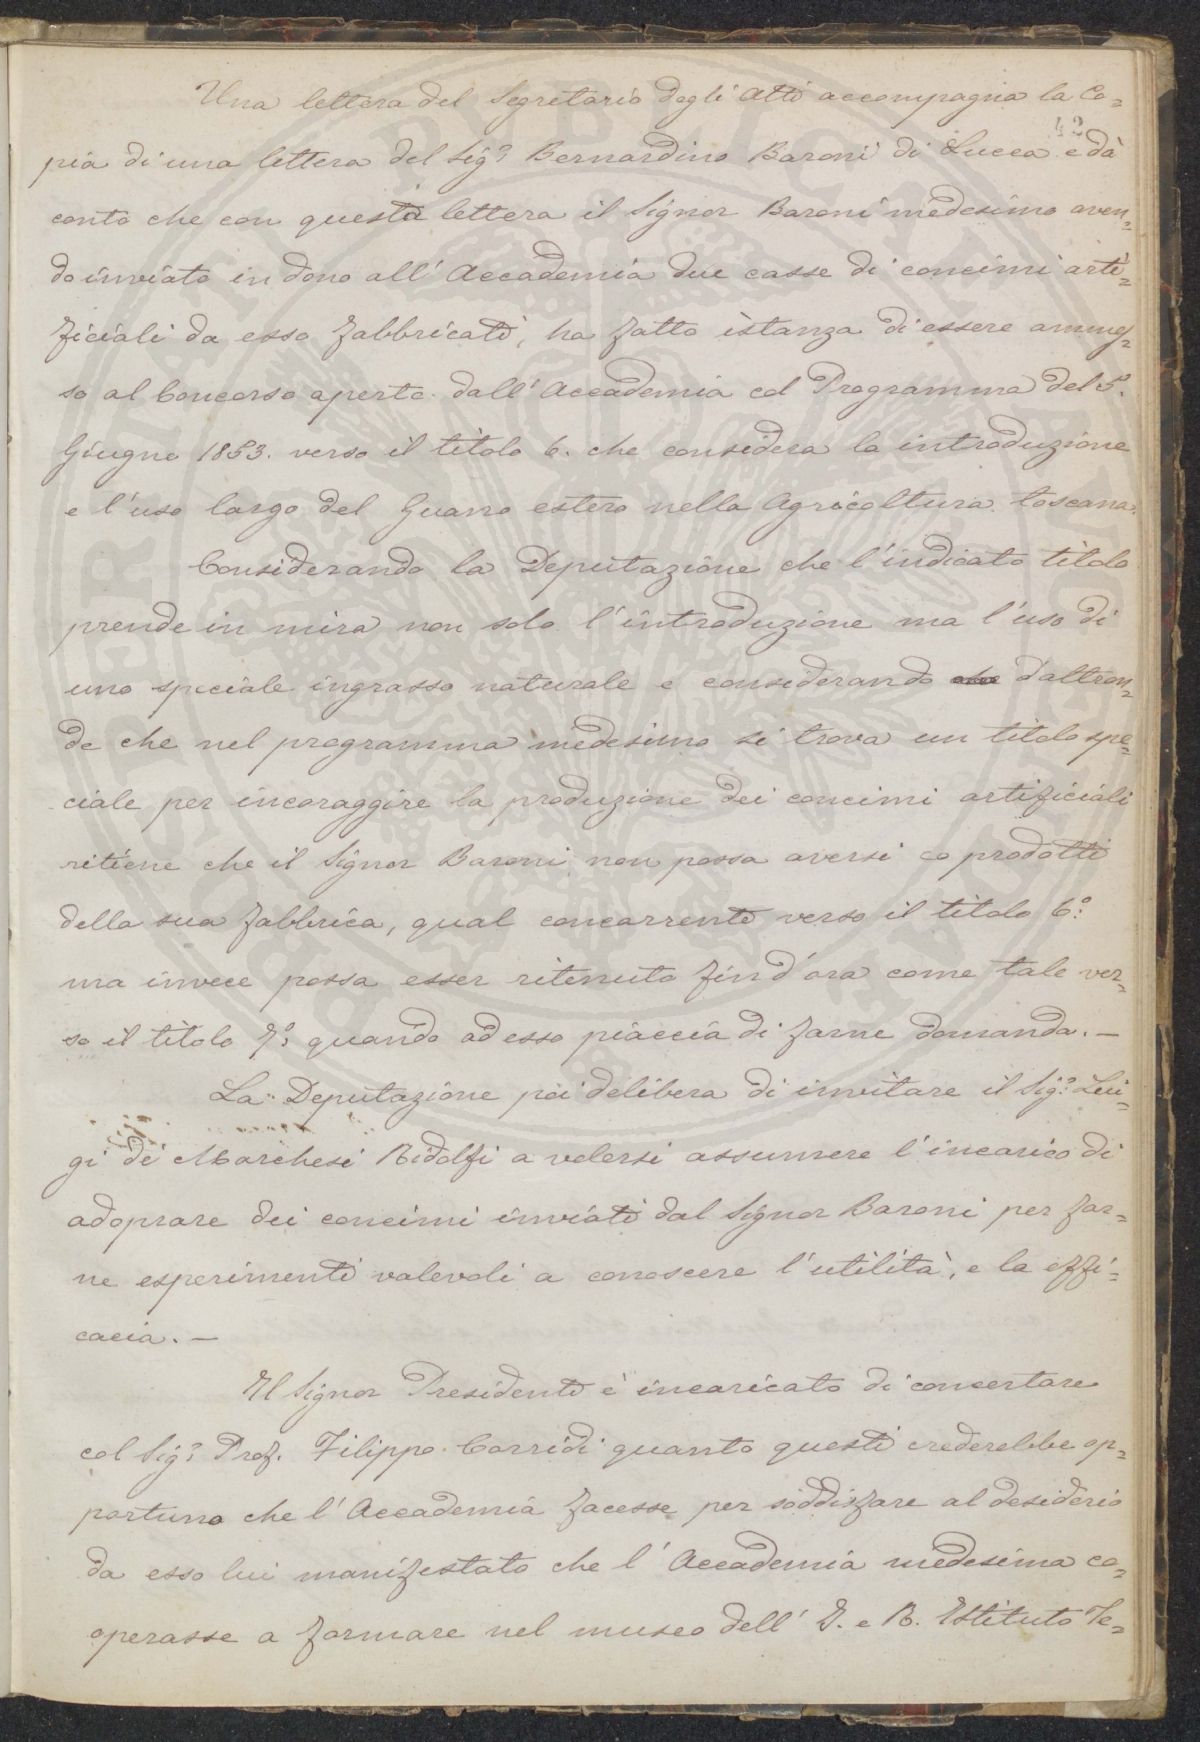 Una lettera del Segretario degli Atti accompagna la Co=
42
pia di una lettera del Sig.r Bernardino Baroni di Lucca e dà
conto che con questa lettera il Signor Baroni medesimo aven=
do inviato in dono all'Accademia due casse di concimi arti=
ficiali da esso fabbricati, ha fatto istanza di essere ammes=
so al Concorso aperto dall'Accademia col Programma del 5.
Giugno 1853. verso il titolo 6. che considera la introduzione
e l'uso largo del Guano estero nella Agricoltura toscana.
Considerando la Deputazione che l'indicato titolo
prende in mira non solo l'introduzione ma l'uso di
uno speciale ingrasso naturale e considerando che d'altron=
de che nel programma medesimo si trova un titolo spe=
ciale per incoraggire la produzione dei concimi artificiali
ritiene che il Signor Baroni non possa aversi co prodotti
della sua fabbrica, qual concorrente verso il titolo 6.°
ma invece possa esser ritenuto fin d'ora come tale ver=
so il titolo 7.° quando ad esso piaccia di farne domanda. —
La Deputazione poi delibera di invitare il Sig.r Lui=
gi de Marchesi Ridolfi a volersi assumere l'incarico di
adoprare dei concimi inviati dal Signor Baroni per far=
ne esperimenti valevoli a conoscere l'utilità, e la effi=
cacia. —
Il Signor Presidente è incaricato di concertare
col Sig.r Prof. Filippo Corridi quanto questi crederebbe op=
portuno che l'Accademia facesse per soddisfare al desiderio
da esso lui manifestato che l'Accademia medesima co=
operasse a formare nel museo dell'I. e R. Istituto Te=